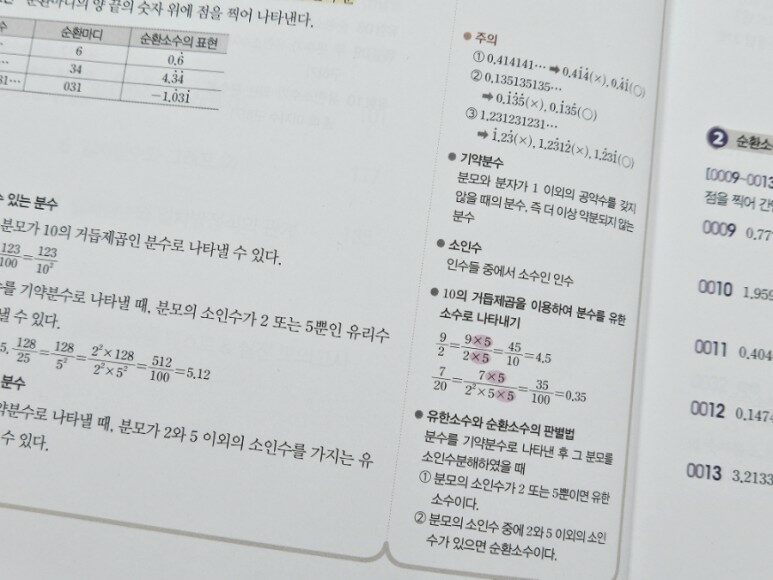 순환마디의 양 끝의 숫자 위에 점을 찍어 나타낸다.
수 순환마디 순환소수의 표현
6 0.6̇
34 4.3̇4̇
031 −1.0̇31̇
있는 분수
분모가 10의 거듭제곱인 분수로 나타낼 수 있다.
123/100=123/10²
를 기약분수로 나타낼 때, 분모의 소인수가 2 또는 5뿐인 유리수
낼 수 있다.
5. 128/25=128/5²=2²×128/2²×5²=512/100=5.12
분수
약분수로 나타낼 때, 분모가 2와 5 이외의 소인수를 가지는 유
수 있다.
● 주의
① 0.414141⋯ ➡ 0.41̇4̇(×), 0.4̇1̇(○)
② 0.135135135⋯
➡ 0.1̇3̇5̇(×), 0.1̇35̇(○)
③ 1.231231231⋯
➡ 1̇.23̇(×), 1.2̇312̇(×), 1.2̇31̇(○)
● 기약분수
분모와 분자가 1 이외의 공약수를 갖지
않을 때의 분수, 즉 더 이상 약분되지 않는
분수
● 소인수
인수들 중에서 소수인 인수
● 10의 거듭제곱을 이용하여 분수를 유한
소수로 나타내기
9/2=9×5/2×5=45/10=4.5
7/20=7×5/2²×5×5=35/100=0.35
● 유한소수와 순환소수의 판별법
분수를 기약분수로 나타낸 후 그 분모를
소인수분해하였을 때
① 분모의 소인수가 2 또는 5뿐이면 유한
소수이다.
② 분모의 소인수 중에 2와 5 이외의 소인
수가 있으면 순환소수이다.
2 순환소
[0009~0013
점을 찍어 간
0009 0.77
0010 1.959
0011 0.404
0012 0.1474
0013 3.2133